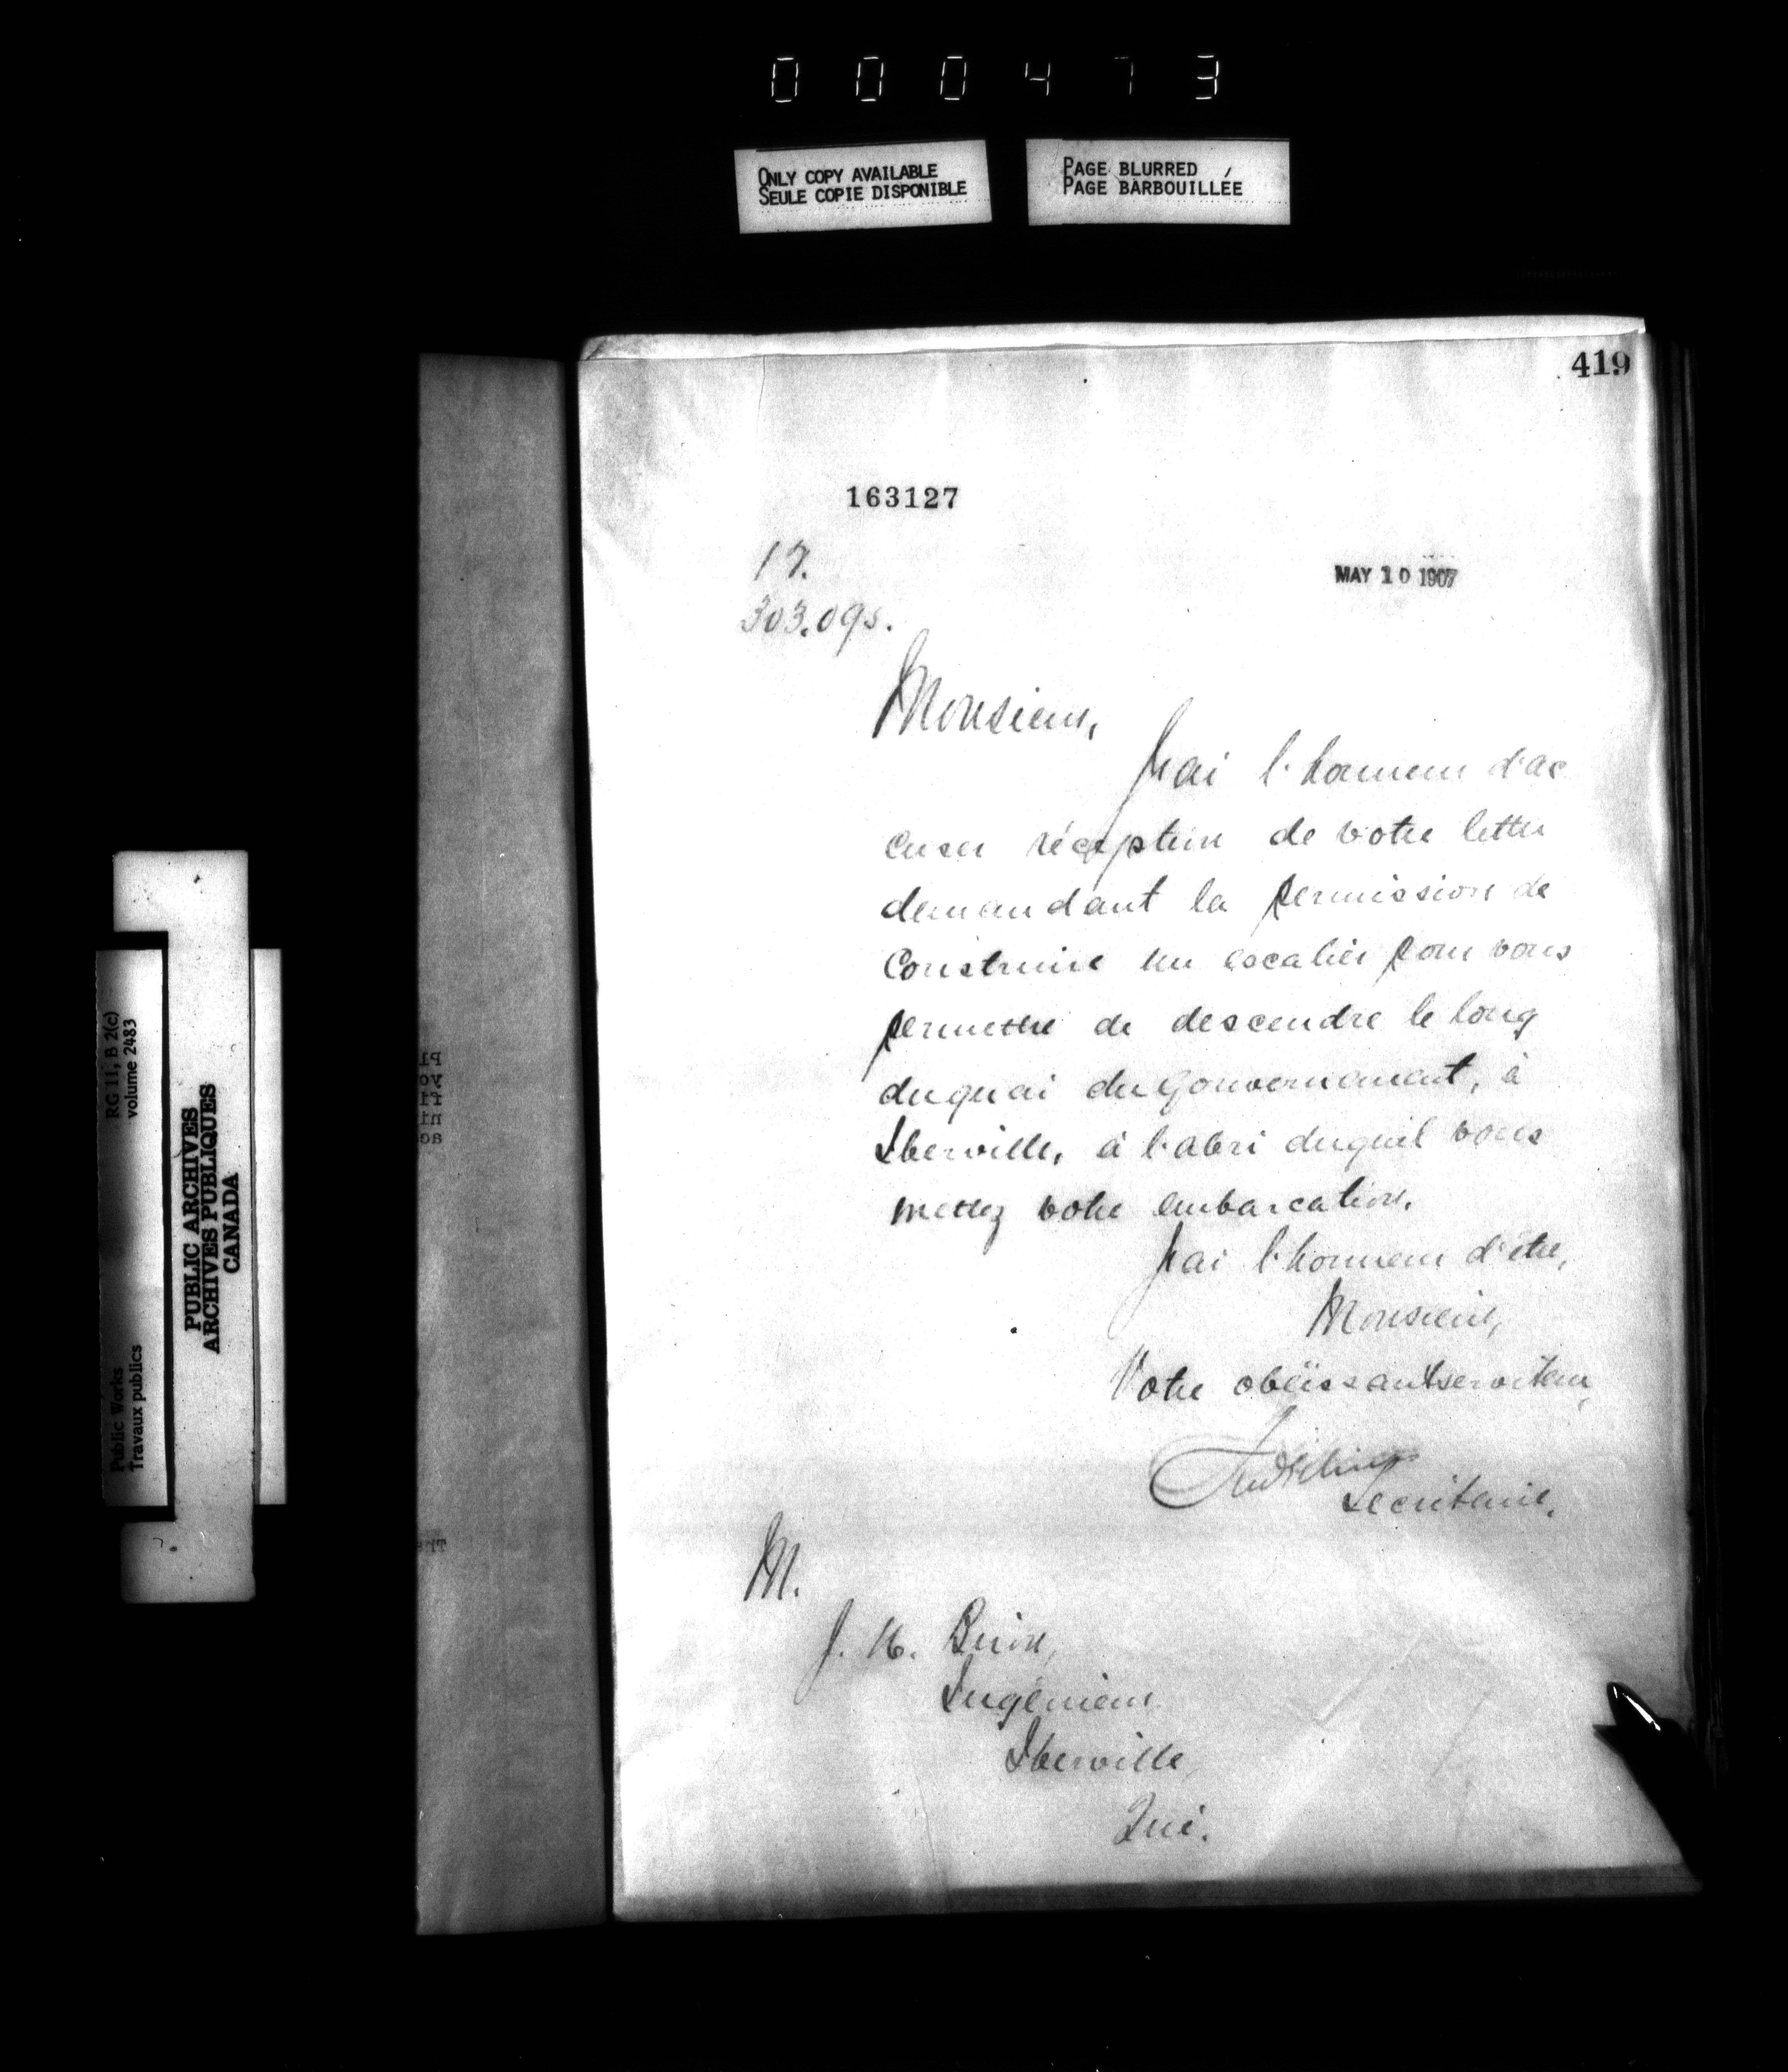 000473
ONLY COPY AVAILABLE
SEULE COPIE DISPONIBLE
PAGE BLURRED
PAGE BARBOUILLÉE
419
163127
17.
303.095.
MAY 10 1907
Monsieur,
J'ai l'honneur d'ac
cuser réception de votre lettre
demandant la permission de
Construire un escalier pour vous
permettre de descendre le long
du quai du Gouvernement, à
Iberville, à l'abri duquel vous
mettez votre embarcation.
J'ai l'honneur d'être,
Monsieur,
Votre obéissant serviteur,
Secrétaire.
M.
J. H.
Ingénieur
Iberville
Qué.
RG 11, B 2(c)
volume 2483
PUBLIC ARCHIVES
ARCHIVES PUBLIQUES
CANADA
Public Works
Travaux publics